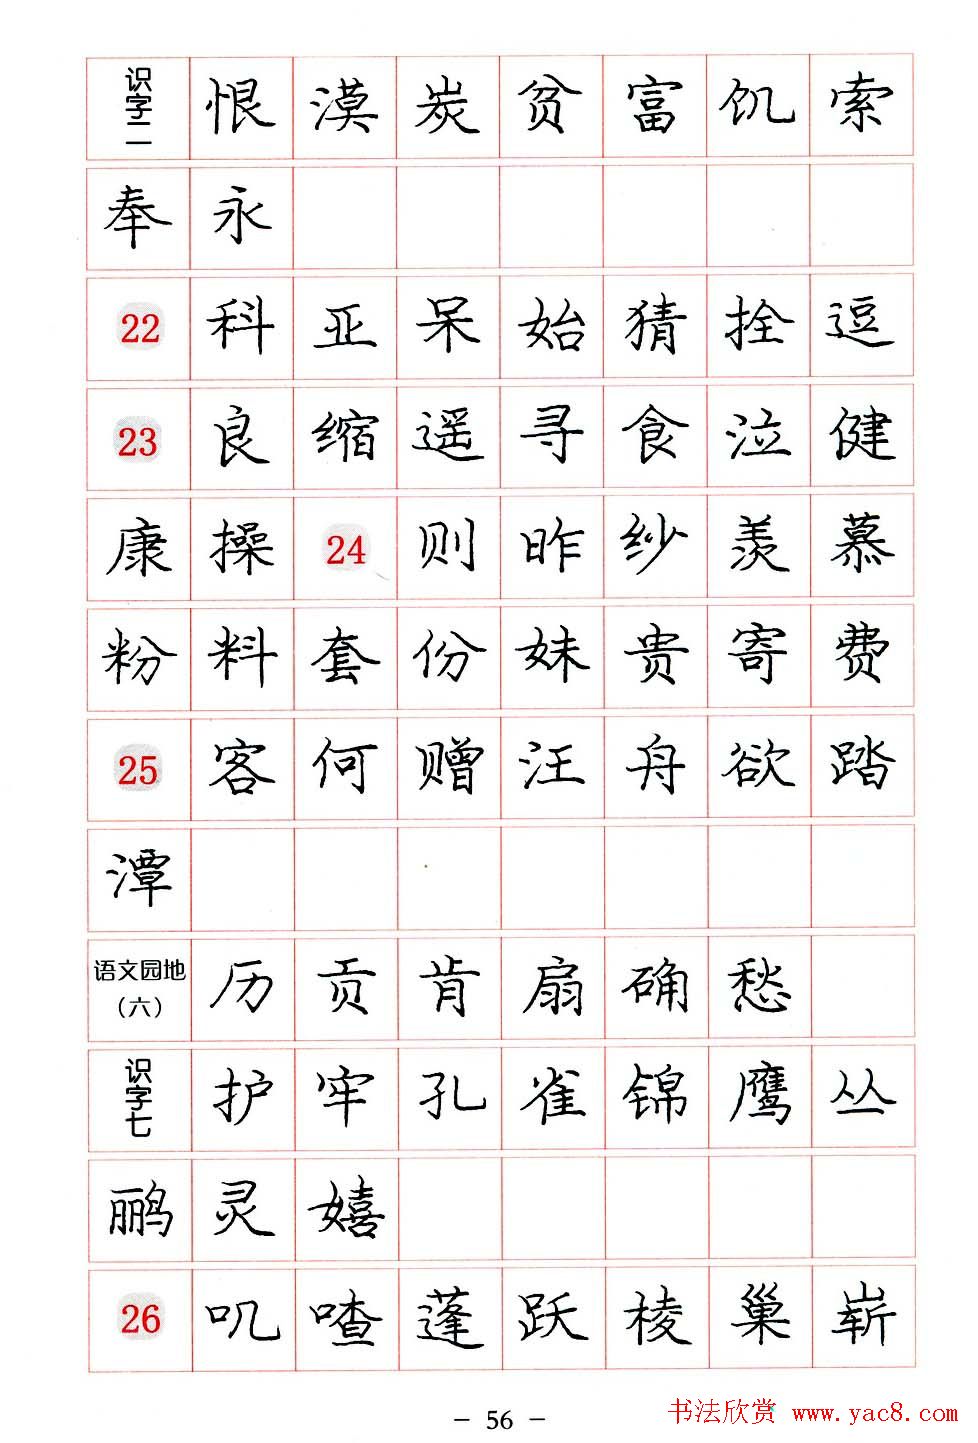 识字二 恨 漠 炭 贫 富 饥 索
奉 永
22 科 亚 呆 始 猜 拴 逗
23 良 缩 遥 寻 食 泣 健
康 操 24 则 昨 纱 羡 慕
粉 料 套 份 妹 贵 寄 费
25 客 何 赠 汪 舟 欲 踏
潭
语文园地（六） 历 贡 肯 扇 确 愁
识字七 护 牢 孔 雀 锦 鹰 丛
鹂 灵 嬉
26 叽 喳 蓬 跃 棱 巢 崭
- 56 -
书法欣赏 www.yac8.com